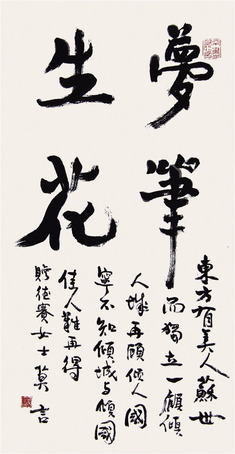 夢筆
生花
東方有美人蘇世
而獨立一顧傾
人城再顧傾人國
寧不知傾城与傾國
佳人難再得
贈德賽女士莫言